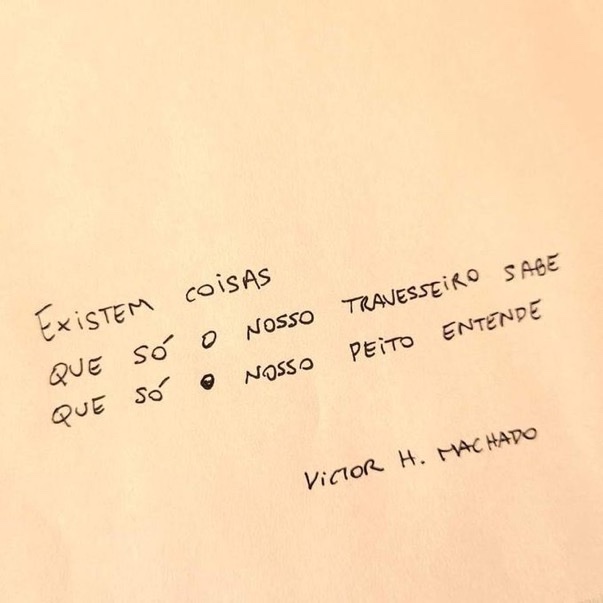 Existem coisas
que só o nosso travesseiro sabe
que só o nosso peito entende
Victor H. Machado